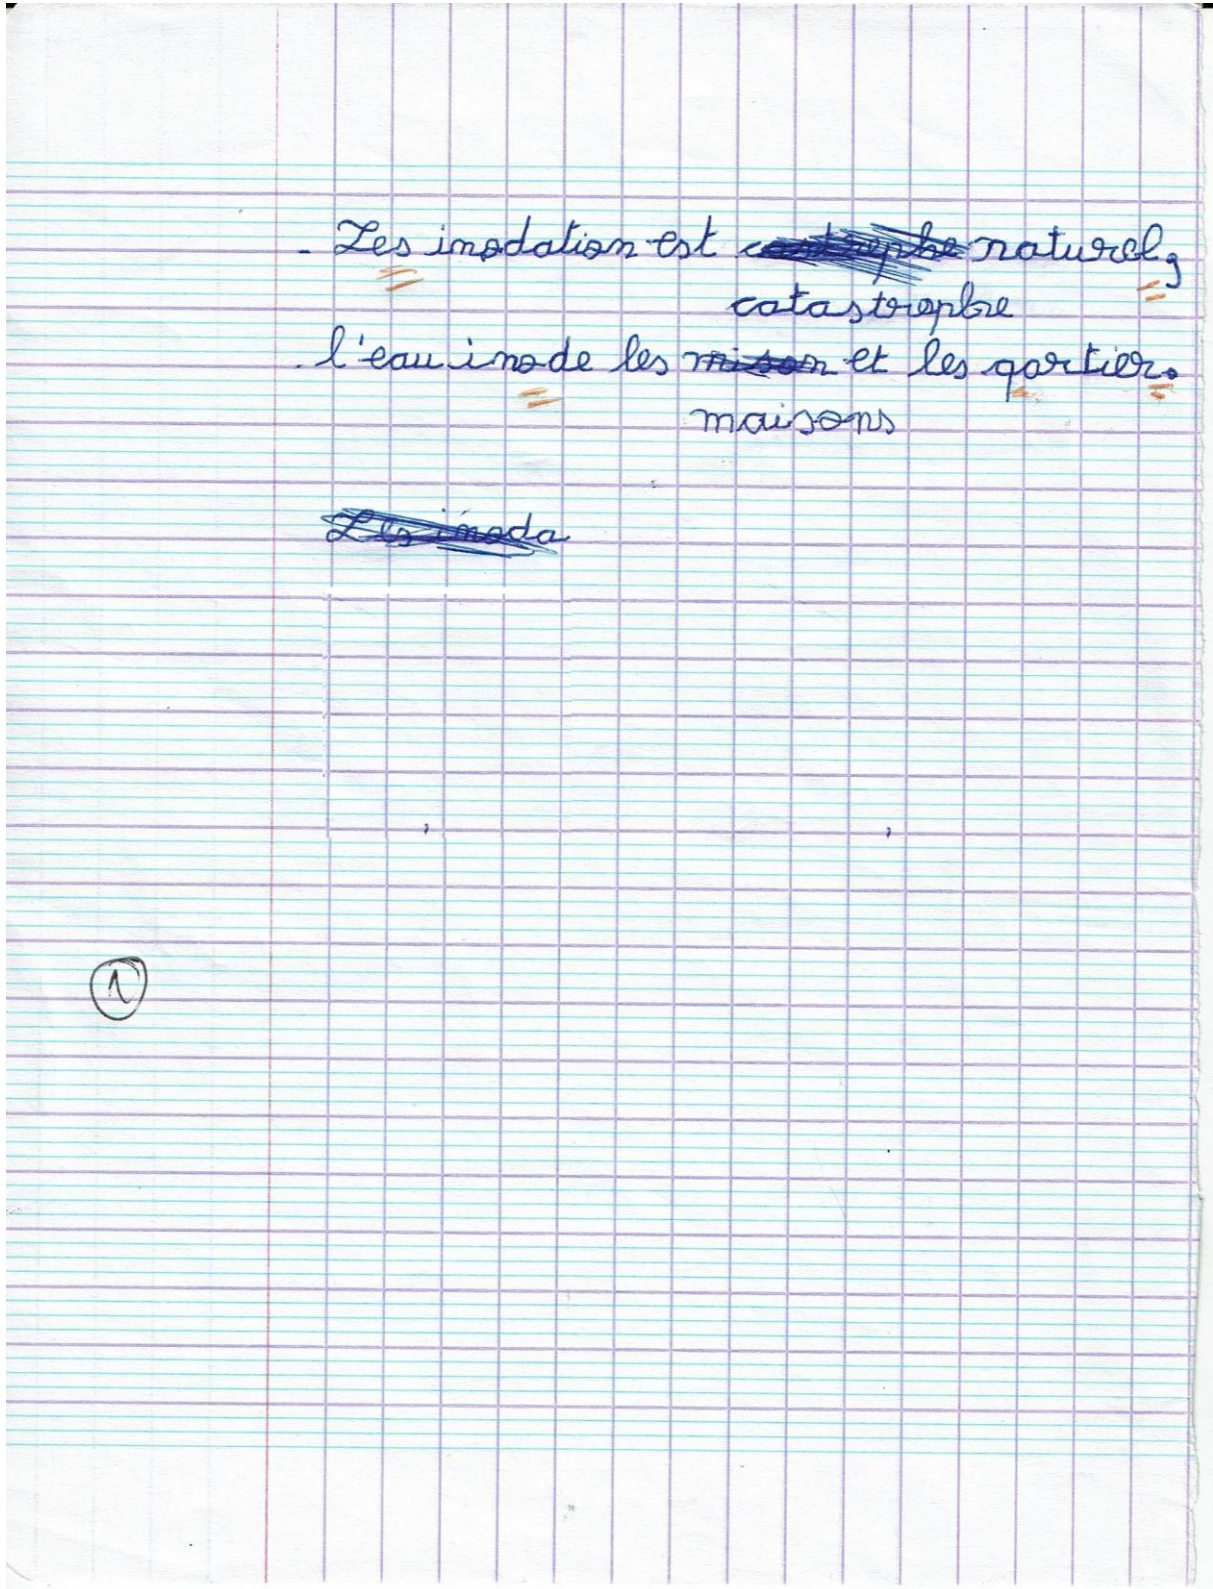 - Les inodation est castrephe naturel,
catastrophe
. l'eau inode les mison et les qartier.
maisons
Les inoda
1